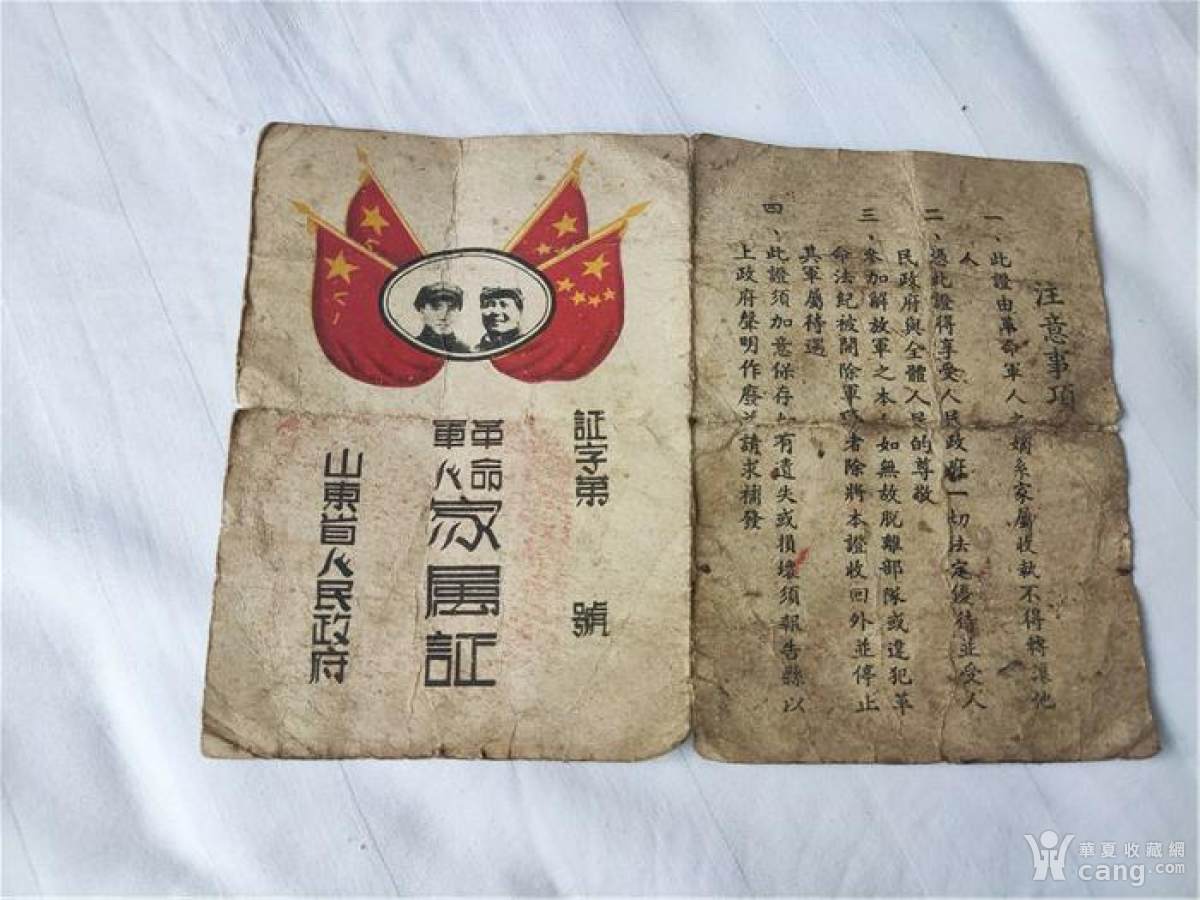 証字第 號
革命
軍人
家属証
山東省人民政府
注意事項
一、此證由革命軍人之嫡系家屬收執不得轉讓他
人
二、憑此證得享受人民政府一切法定優待並受人
民政府與全體人民的尊敬
三、參加解放軍之本人如無故脫離部隊或違犯革
命法紀被開除軍籍者除將本證收回外並停止
其軍屬待遇
四、此證須加意保存如有遺失或損壞須報告縣以
上政府聲明作廢並請求補發
華夏收藏網
cang.com